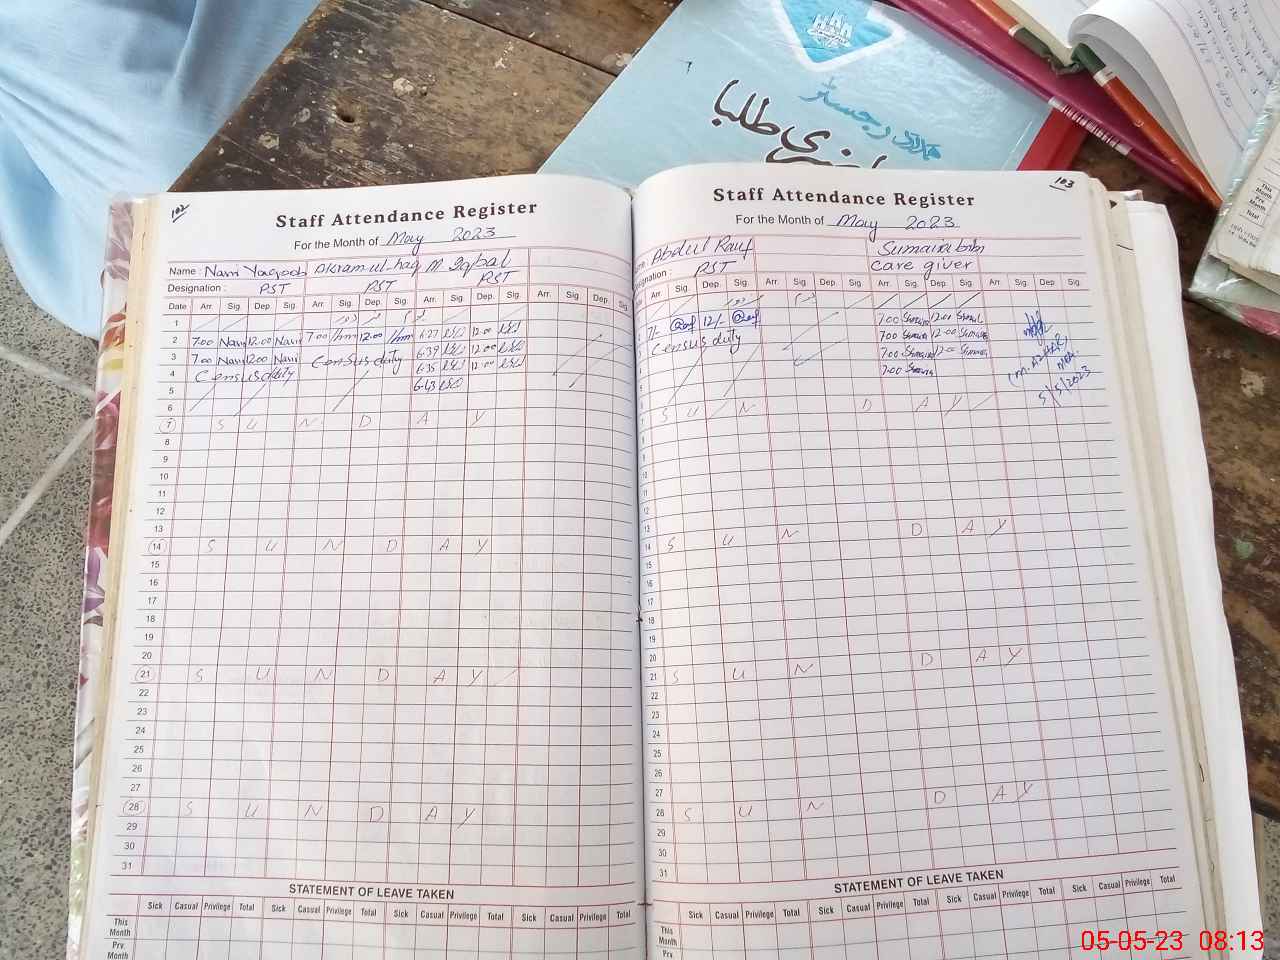 HAN
ہمدانی رجسٹر
حاضری طلبا
102
Staff Attendance Register
For the Month of May 2023
Name : Navi Yaqoob Akram-ul-haq M. Iqbal
Designation : PST PST PST
Date Arr. Sig. Dep. Sig. Arr. Sig. Dep. Sig. Arr. Sig. Dep. Sig. Arr. Sig. Dep. Sig.
1
2 7.00 Navi 12.00 Navi 7.00 12.00 6.27 12.00
3 7.00 Navi 12.00 Navi Census duty 6.39 12.00
4 Census duty 6.35 12.00
5 6.43
6
7 S U N D A Y
8
9
10
11
12
13
14 S U N D A Y
15
16
17
18
19
20
21 S U N D A Y
22
23
24
25
26
27
28 S U N D A Y
29
30
31
STATEMENT OF LEAVE TAKEN
Sick Casual Privilege Total Sick Casual Privilege Total Sick Casual Privilege Total Sick Casual Privilege Total
This Month
Prv Month
103
Staff Attendance Register
For the Month of May 2023
Abdul Rauf Sumaira bibi
Designation : PST Care giver
Arr. Sig. Dep. Sig. Arr. Sig. Dep. Sig. Arr. Sig. Dep. Sig. Arr. Sig. Dep. Sig.
7/- Rauf 12/- Rauf 7.00 12.00
Census duty 7.00 12.00
7.00 12.00
7.00
5/5/2023
S U N D A Y
8
9
10
11
12
13
14 S U N D A Y
15
16
17
18
19
20
21 S U N D A Y
22
23
24
25
26
27
28 S U N D A Y
29
30
31
STATEMENT OF LEAVE TAKEN
Sick Casual Privilege Total Sick Casual Privilege Total Sick Casual Privilege Total
This Month
Prv
This Month
Prv Month
Total
05-05-23 08:13